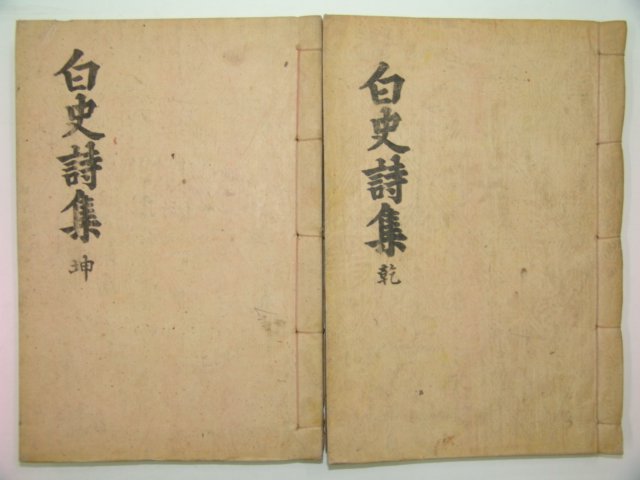 白史詩集 乾
白史詩集 坤